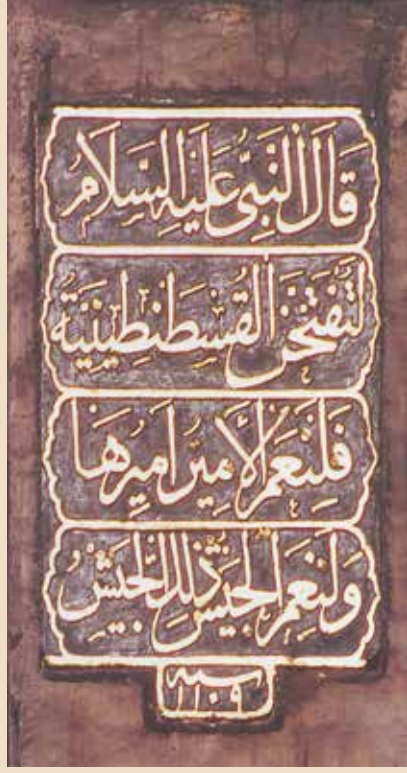 قَالَ النَّبِيُّ عَلَيْهِ السَّلَامُ
لَتُفْتَحَنَّ القُسْطَنْطِينِيَّةُ
فَلَنِعْمَ الأَمِيرُ أَمِيرُهَا
وَلَنِعْمَ الجَيْشُ ذَلِكَ الجَيْشُ
سنه
١١٠٩